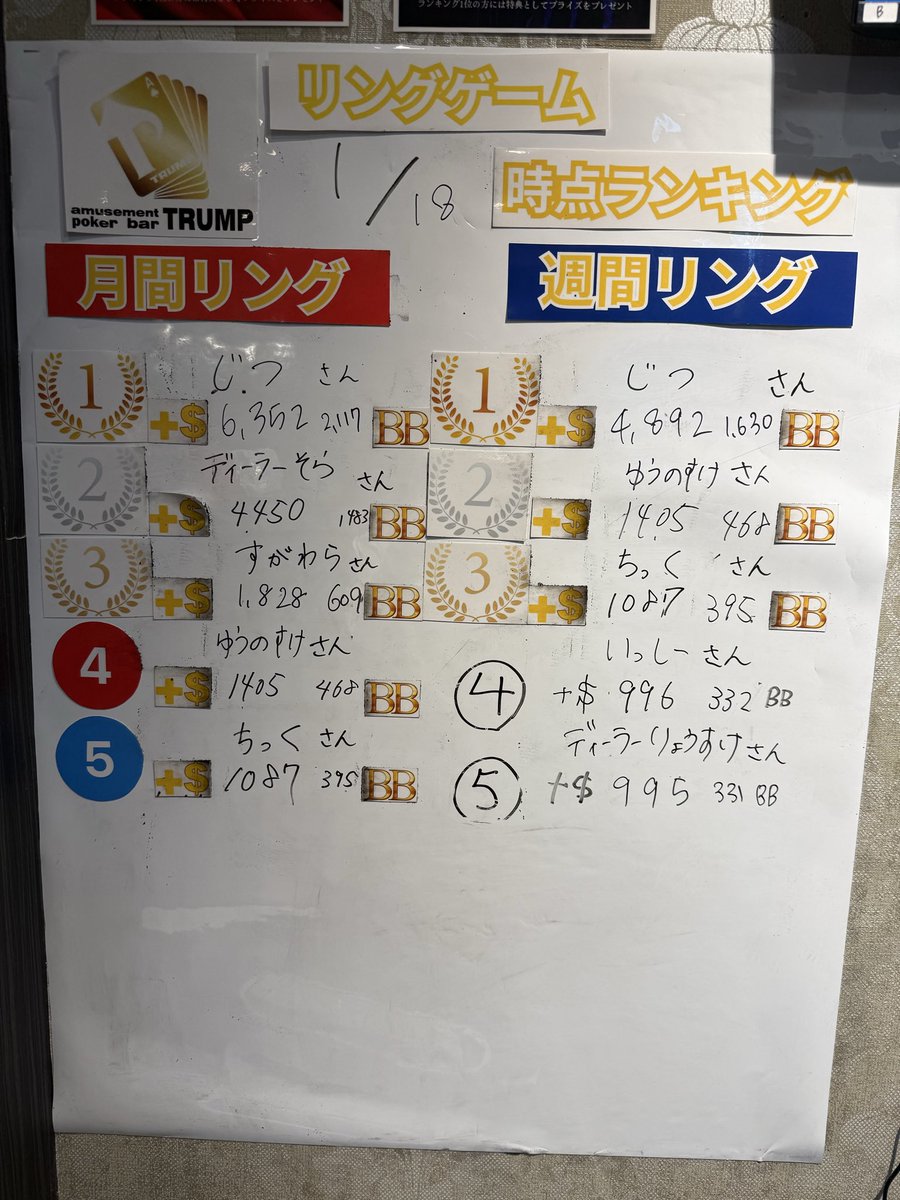 ランキング1位の方には特典としてプライズをプレゼント
B
リングゲーム
TRUMP
amusement
poker bar TRUMP
1/18
時点ランキング
月間リング
1 じつ さん
+$ 6,352 2,117 BB
2 ディーラーそら さん
+$ 4450 1,483 BB
3 すがわら さん
+$ 1,828 609 BB
4 ゆうのすけ さん
+$ 1405 468 BB
5 ちっく さん
+$ 1087 395 BB
週間リング
1 じつ さん
+$ 4,892 1,630 BB
2 ゆうのすけ さん
+$ 1405 468 BB
3 ちっく さん
+$ 1087 395 BB
4 いっしー さん
+$ 996 332 BB
5 ディーラーりょうすけ さん
+$ 995 331 BB